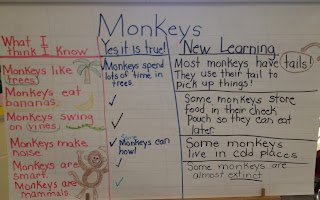 Monkeys
What I
Think I Know
Monkeys like
trees.
Monkeys eat
bananas.
Monkeys swing
on vines.
Monkeys make
noise.
Monkeys are
smart.
Monkeys are
mammals
Yes it is true!
Monkeys spend
lots of time in
trees.
Some
Monkeys can
howl!
New Learning
Most monkeys have tails!
They use their tail to
pick up things!
Some monkeys store
food in their cheek
pouch so they can eat
later.
Some monkeys
live in cold places
Some monkeys are
almost extinct